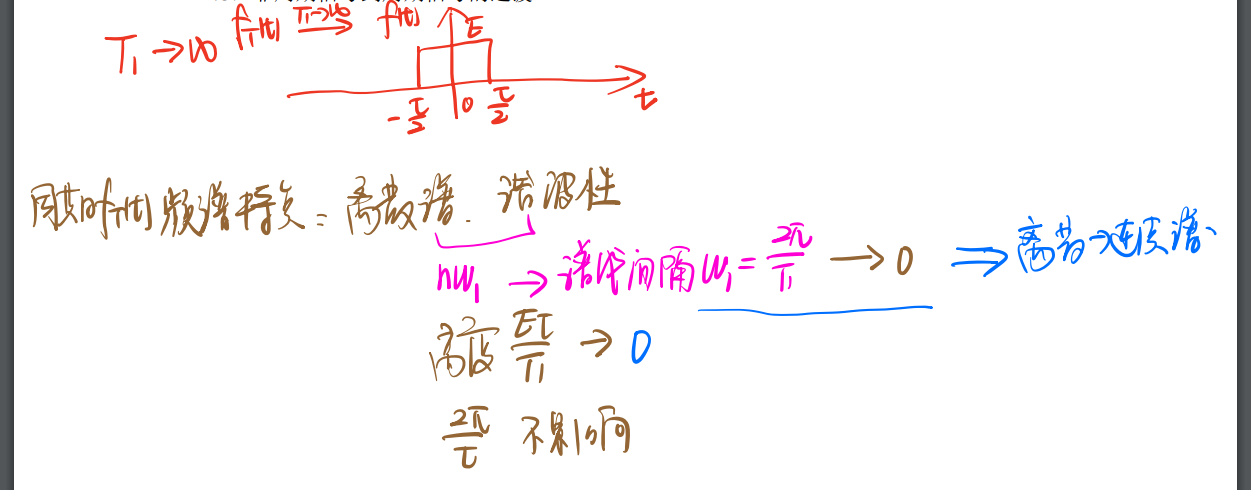 T₁→∞ f_T(t) T₁→∞ f(t) E
-τ/2 0 τ/2 t
周期f_T(t)频谱特点：离散谱. 谐波性
nω₁ → 谱线间隔ω₁=2π/T₁ → 0 ⇒ 离散→连续谱、
高度 Eτ/T₁ → 0
2π/τ 不影响